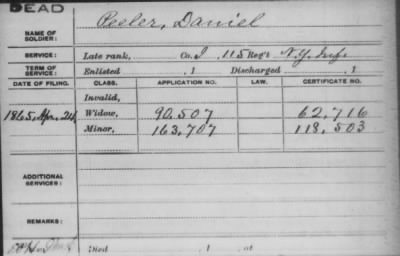 DEAD
NAME OF SOLDIER: Peeler, Daniel
SERVICE: Late rank, Co. I, 115 Reg't N.Y. Inf.
TERM OF SERVICE: Enlisted , 1 Discharged , 1
DATE OF FILING. CLASS. APPLICATION NO. LAW. CERTIFICATE NO.
Invalid,
1865, Apr. 24, Widow, 90.507 62,716
Minor, 163,707 118,503
ADDITIONAL SERVICES:
REMARKS:
Died , 1 , at